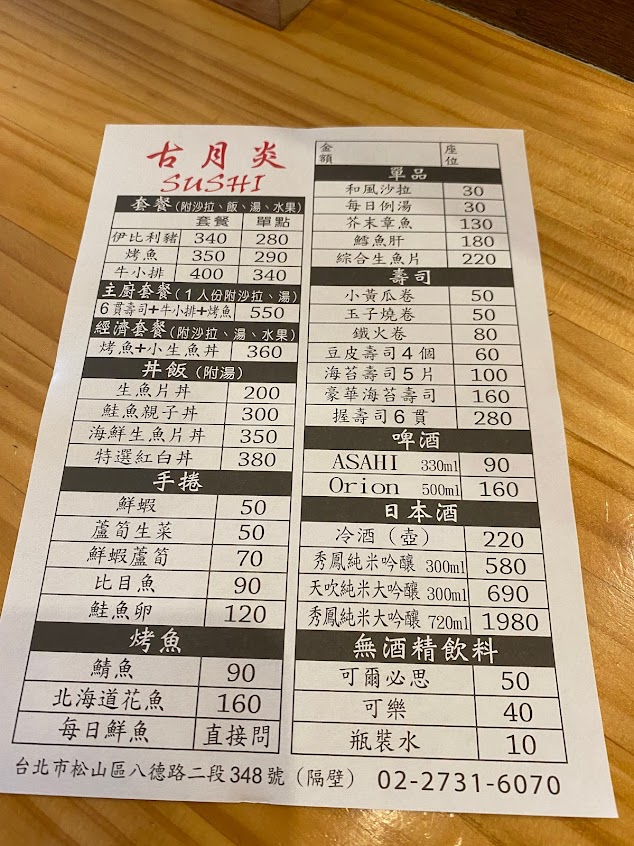 古月炎
SUSHI
套餐(附沙拉、飯、湯、水果)
套餐 單點
伊比利豬 340 280
烤魚 350 290
牛小排 400 340
主廚套餐(1人份附沙拉、湯)
6貫壽司+牛小排+烤魚 550
經濟套餐(附沙拉、湯、水果)
烤魚+小生魚丼 360
丼飯(附湯)
生魚片丼 200
鮭魚親子丼 300
海鮮生魚片丼 350
特選紅白丼 380
手捲
鮮蝦 50
蘆筍生菜 50
鮮蝦蘆筍 70
比目魚 90
鮭魚卵 120
烤魚
鯖魚 90
北海道花魚 160
每日鮮魚 直接問
金額 座位
單品
和風沙拉 30
每日例湯 30
芥末章魚 130
鱈魚肝 180
綜合生魚片 220
壽司
小黃瓜卷 50
玉子燒卷 50
鐵火卷 80
豆皮壽司4個 60
海苔壽司5片 100
豪華海苔壽司 160
握壽司6貫 280
啤酒
ASAHI 330ml 90
Orion 500ml 160
日本酒
冷酒(壺) 220
秀鳳純米吟釀 300ml 580
天吹純米大吟釀 300ml 690
秀鳳純米大吟釀 720ml 1980
無酒精飲料
可爾必思 50
可樂 40
瓶裝水 10
台北市松山區八德路二段348號(隔壁) 02-2731-6070